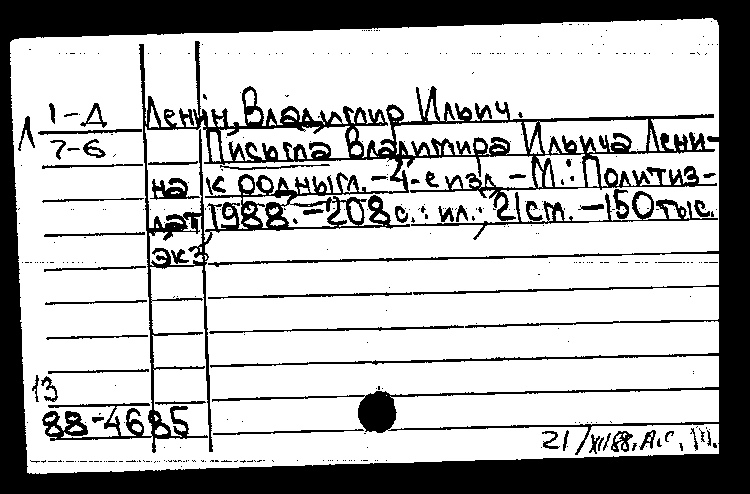 Л 1-Д Ленин, Владимир Ильич.
7-6 Письма Владимира Ильича Лени-
на к родным. - 4-е изд. - М.: Политиз-
дат, 1988. - 208 с.: ил.; 21 см. - 150 тыс.
экз.
13
88-4685
21/XII88. А.С.